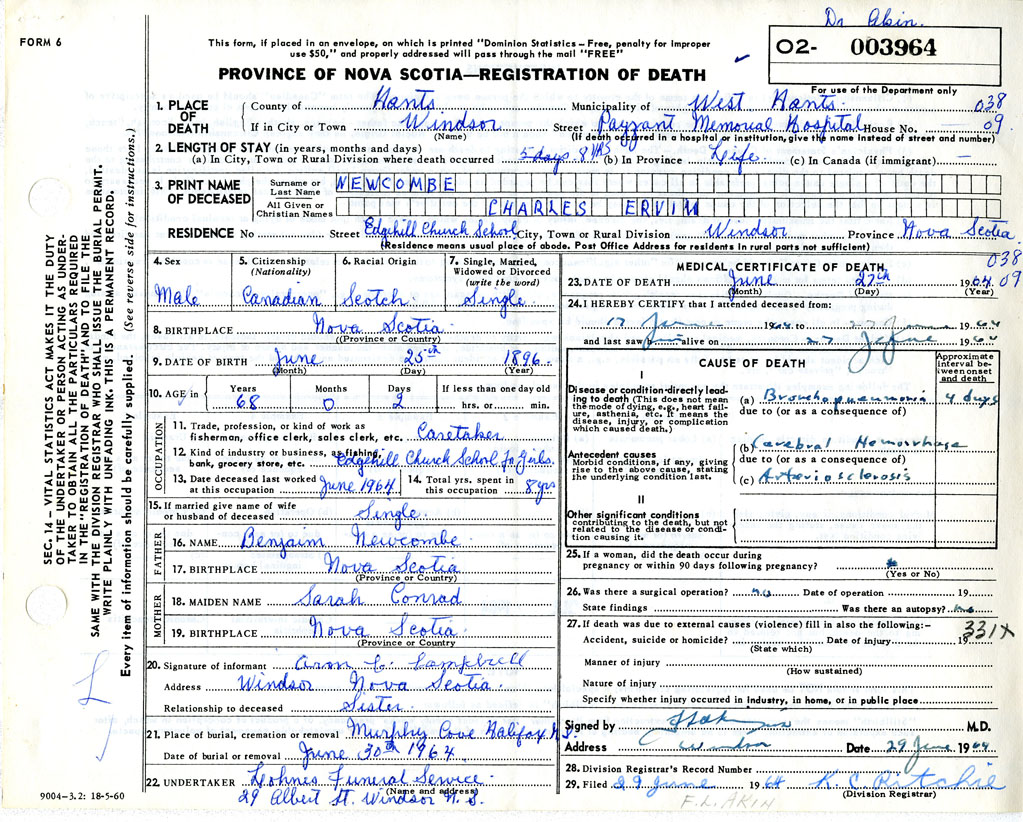 Dr Akin.
FORM 6
This form, if placed in an envelope, on which is printed "Dominion Statistics – Free, penalty for improper
use $50," and properly addressed will pass through the mail "FREE"
O2- 003964
PROVINCE OF NOVA SCOTIA—REGISTRATION OF DEATH
For use of the Department only
1. PLACE OF DEATH
County of Hants Municipality of West Hants. 038
If in City or Town Windsor Street Payzant Memorial Hospital House No. 09
(Name) (If death occurred in a hospital or institution, give name instead of street and number)
2. LENGTH OF STAY (in years, months and days)
(a) In City, Town or Rural Division where death occurred 5 days 8 yrs (b) In Province Life (c) In Canada (if immigrant) —
3. PRINT NAME OF DECEASED
Surname or Last Name NEWCOMBE
All Given or Christian Names CHARLES ERVIN
RESIDENCE No Street Edgehill Church School City, Town or Rural Division Windsor Province Nova Scotia.
(Residence means usual place of abode. Post Office Address for residents in rural parts not sufficient)
038
09
SEC. 14 – VITAL STATISTICS ACT MAKES IT THE DUTY
OF THE UNDERTAKER OR PERSON ACTING AS UNDER-
TAKER TO OBTAIN ALL THE PARTICULARS REQUIRED
IN THE "REGISTRATION OF DEATH" AND TO FILE THE
SAME WITH THE DIVISION REGISTRAR WHO SHALL ISSUE THE BURIAL PERMIT.
WRITE PLAINLY WITH UNFADING INK–THIS IS A PERMANENT RECORD.
Every item of information should be carefully supplied. (See reverse side for instructions.)
4. Sex
Male
5. Citizenship
(Nationality)
Canadian
6. Racial Origin
Scotch
7. Single, Married,
Widowed or Divorced
(write the word)
Single
8. BIRTHPLACE Nova Scotia
((Province or Country)
9. DATE OF BIRTH June 25th 1896
(Month) (Day) (Year)
10. AGE in
Years 68
Months 0
Days 2
If less than one day old
hrs. or min.
OCCUPATION
11. Trade, profession, or kind of work as
fisherman, office clerk, sales clerk, etc. Caretaker
12. Kind of industry or business, as fishing,
bank, grocery store, etc. Edgehill Church School for Girls.
13. Date deceased last worked
at this occupation June 1964
14. Total yrs. spent in
this occupation 8 yrs
15. If married give name of wife
or husband of deceased Single
FATHER
16. NAME Benjaim Newcombe
17. BIRTHPLACE Nova Scotia
(Province or Country)
MOTHER
18. MAIDEN NAME Sarah Conrad
19. BIRTHPLACE Nova Scotia
(Province or Country
20. Signature of informant Campbell
Address Windsor Nova Scotia
Relationship to deceased Sister
21. Place of burial, cremation or removal Murphy Cove Halifax N S
Date of burial or removal June 30th 1964
22. UNDERTAKER Lohnes Funeral Service
(Name and address)
29 Albert St. Windsor N. S.
9004–3.2: 18-5-60
MEDICAL CERTIFICATE OF DEATH
23. DATE OF DEATH June 27th 1964
(Month) (Day) (Year)
24. I HEREBY CERTIFY that I attended deceased from:
17 June 1964 to 27 June 1964
and last saw him alive on 27 June 1964
CAUSE OF DEATH
Approximate
interval be-
tween onset
and death
I
Disease or condition directly lead-
ing to death (This does not mean
the mode of dying, e.g., heart fail-
ure, asthenia, etc. It means the
disease, injury, or complication
which caused death.)
(a) Bronchopneumonia 4 days
due to (or as a consequence of)
Antecedent causes
Morbid conditions, if any, giving
rise to the above cause, stating
the underlying condition last.
(b) Cerebral Hemorrhage
due to (or as a consequence of)
(c) Arteriosclerosis
II
Other significant conditions
contributing to the death, but not
related to the disease or condi-
tion causing it.
25. If a woman, did the death occur during
pregnancy or within 90 days following pregnancy?
(Yes or No)
26. Was there a surgical operation? no Date of operation 19
State findings Was there an autopsy? no
27. If death was due to external causes (violence) fill in also the following:–
331X
Accident, suicide or homicide? Date of injury 19
(State which)
Manner of injury
(How sustained)
Nature of injury
Specify whether injury occurred in industry, in home, or in public place
Signed by M.D.
Address Windsor Date 29 June 1964
28. Division Registrar's Record Number
29. Filed 29 June 1964 K. C. Ritchie
(Division Registrar)
F. L. AKIN